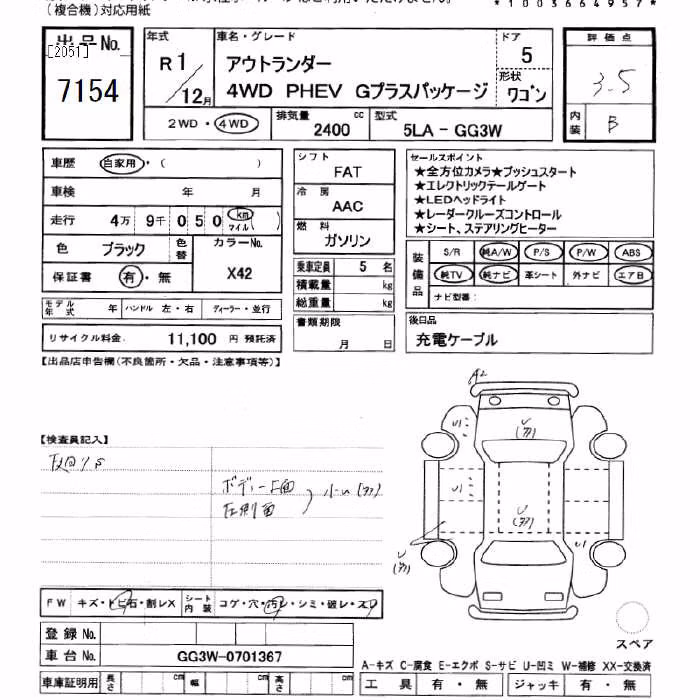 (複合機)対応用紙
*1003664957*
出品No.
[2051]
7154
年式
R1/12月
車名・グレード
アウトランダー
4WD PHEV Gプラスパッケージ
ドア
5
形状
ワゴン
評価点
3.5
内装
B
2WD・4WD
排気量
2400 cc
型式
5LA-GG3W
車歴 自家用・( )
車検 年 月
走行 4万 9千 050 km マイル( )
色 ブラック 色替
カラーNo.
X42
保証書 有・無
モデル年式 年 ハンドル 左・右 ディーラー・並行
リサイクル料金: 11,100 円 預託済
シフト
FAT
冷房
AAC
燃料
ガソリン
乗車定員 5 名
積載量 kg
総重量 kg
書類期限
月 日
セールスポイント
★全方位カメラ★プッシュスタート
★エレクトリックテールゲート
★LEDヘッドライト
★レーダークルーズコントロール
★シート、ステアリングヒーター
装備品
S/R 純A/W P/S P/W ABS
純TV 純ナビ 革シート 外ナビ エアB
ナビ型番:
後日品
充電ケーブル
【出品店申告欄(不良箇所・欠品・注意事項等)】
【検査員記入】
ボディー上面
左側面
小U
A2
U
U1
U1
U
U
U1
FW キズ・トビ石・割レX
シート内装 コゲ・穴・汚レ・シミ・破レ・スレ
登録No.
車台No. GG3W-0701367
車庫証明用 長さ cm 幅 cm 高さ cm
スペア
A-キズ C-腐食 E-エクボ S-サビ U-凹ミ W-補修 XX-交換済
工具 有・無 ジャッキ 有・無